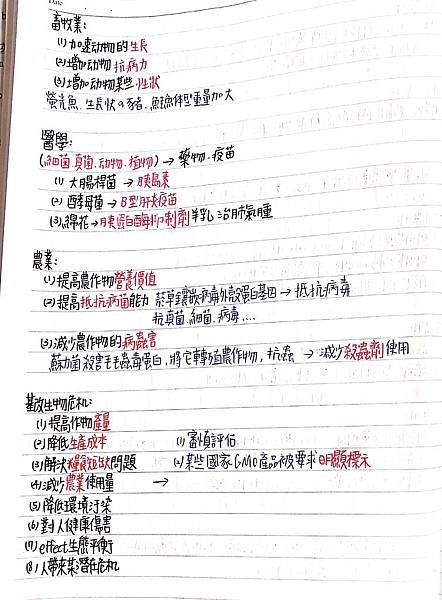 Date
畜牧業:
(1) 加速动物的生長
(2) 增加动物抗病力
(3) 增加动物某些性狀
螢光魚、生長快の豬、魚論体型重量加大
醫學:
(細菌.真菌.动物.植物) → 藥物.疫苗
(1) 大腸桿菌 → 胰島素
(2) 酵母菌 → B型肝炎疫苗
(3) 綿花→胰蛋白酶抑制劑羊乳 治肺氣腫
農業:
(1) 提高農作物營養價值
(2) 提高抵抗病菌能力 菸草鑲嵌病毒外殼蛋白基因 → 抵抗病毒
抗真菌.細菌.病毒....
(3) 減少農作物的病蟲害
蘇力菌殺害毛毛蟲毒蛋白,將它轉殖農作物,抗蟲 → 減少殺蟲劑使用
基改生物危机:
(1) 提高作物產量
(2) 降低生產成本 (1) 審慎評估
(3) 解決糧食短缺問題 (2) 某些國家GMO產品被要求明顯標示
(4) 減少農業使用量 →
(5) 降低環境汙染
(6) 對人健康傷害
(7) effect生態平衡
(8) 人帶來潛在危机